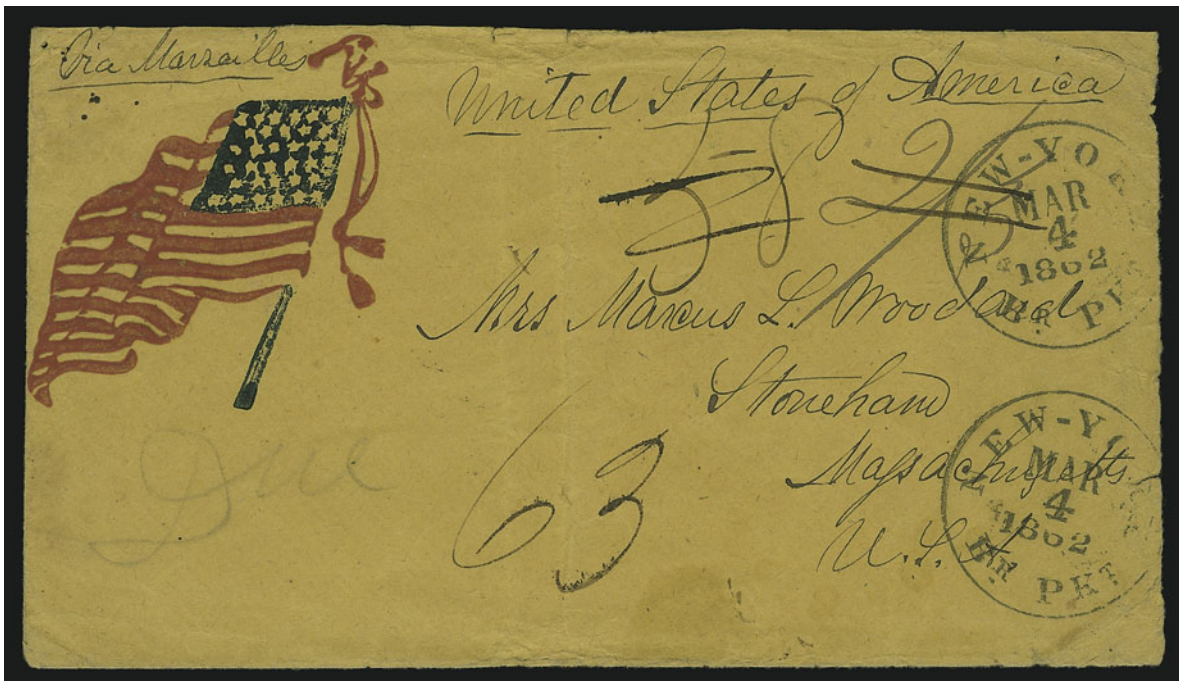 Via Marsailles
United States of America
NEW-YO
MAR
4
1862
Br. PKT
Mrs Marcus L. Woodard
Stoneham
Massachusetts
U.S.A
Due
63
NEW-YO
MAR
4
1862
Br. PKT